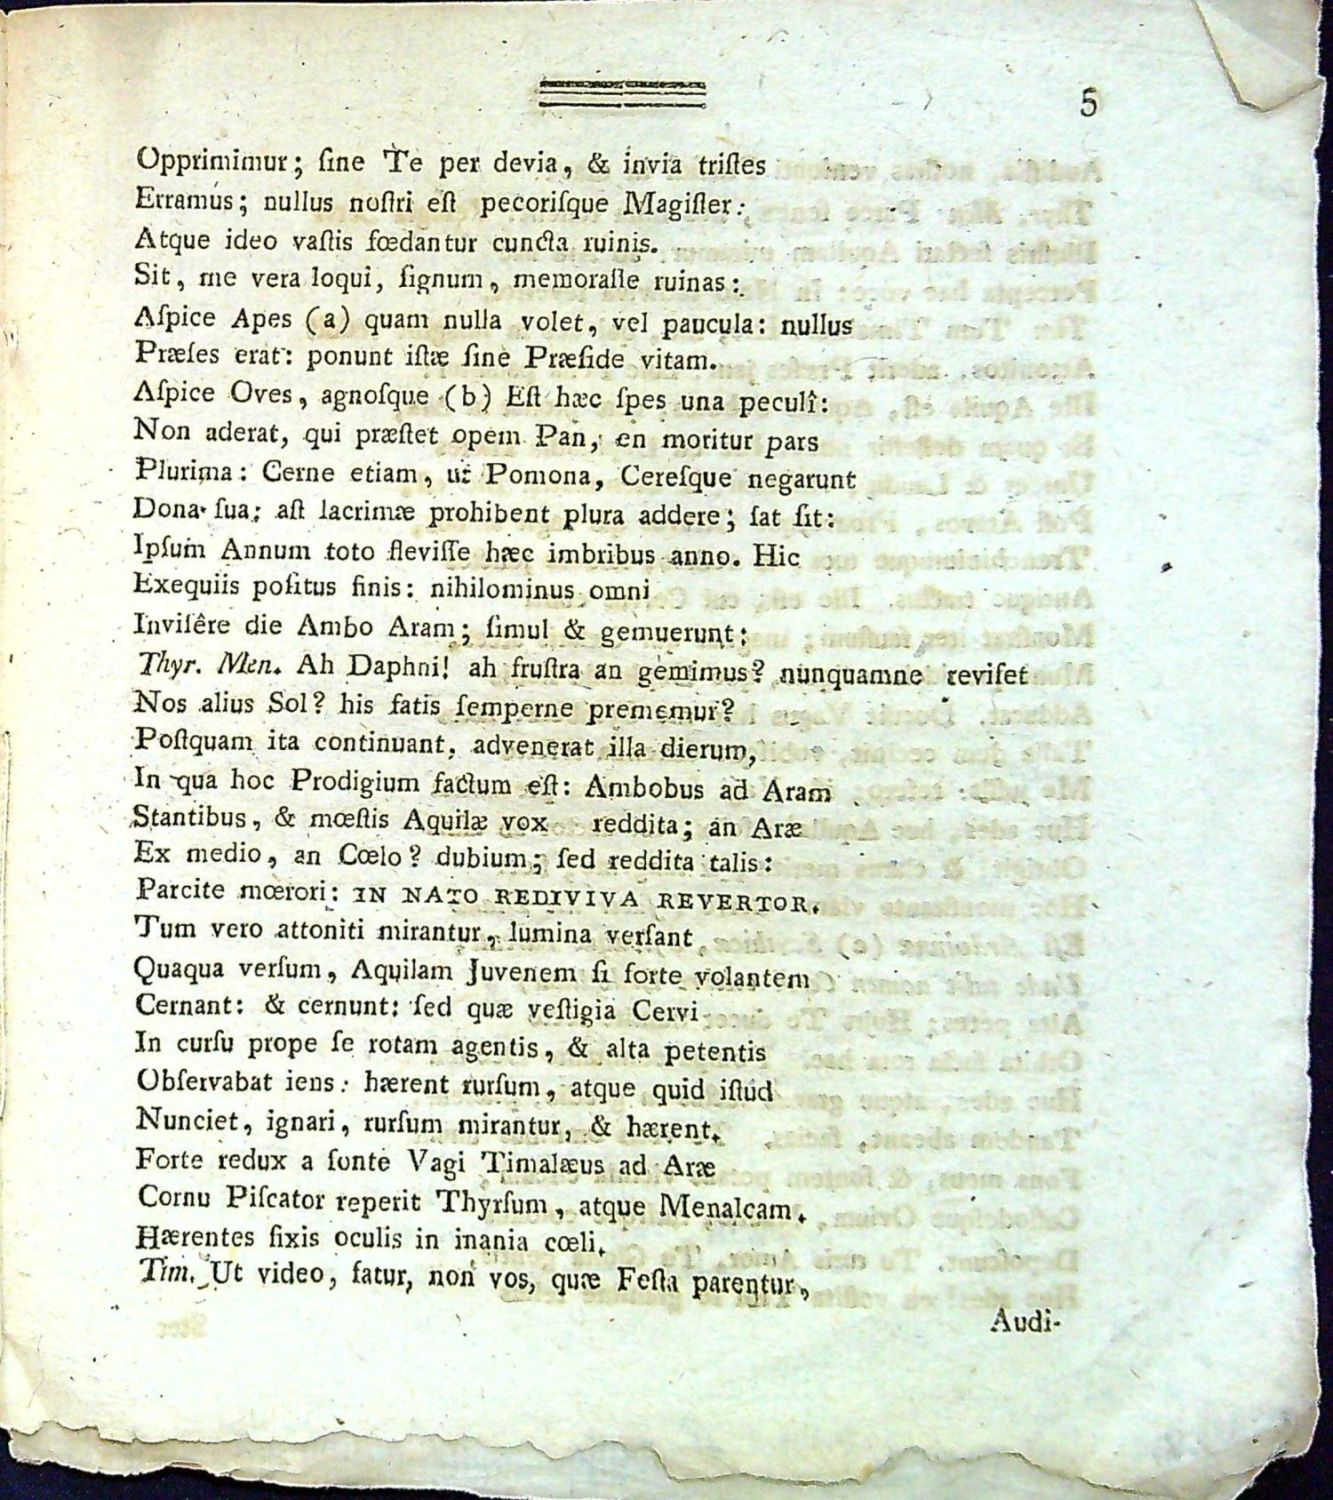 5
Opprimimur; ſine Te per devia, & invia triſtes
Erramus; nullus noſtri eſt pecoriſque Magiſter:
Atque ideo vaſtis fœdantur cuncta ruinis.
Sit, me vera loqui, ſignum, memoraſſe ruinas:
Aſpice Apes (a) quam nulla volet, vel paucula: nullus
Præſes erat: ponunt iſtæ ſine Præſide vitam.
Aſpice Oves, agnoſque (b) Eſt hæc ſpes una peculî:
Non aderat, qui præſtet opem Pan, en moritur pars
Plurima: Cerne etiam, ut Pomona, Cereſque negarunt
Dona ſua: aſt lacrimæ prohibent plura addere; ſat ſit:
Ipſum Annum toto fleviſſe hæc imbribus anno. Hic
Exequiis poſitus finis: nihilominus omni
Inviſêre die Ambo Aram; ſimul & gemuerunt:
Thyr. Men. Ah Daphni! ah fruſtra an gemimus? nunquamne reviſet
Nos alius Sol? his fatis ſemperne prememur?
Poſtquam ita continuant, advenerat illa dierum,
In qua hoc Prodigium factum eſt: Ambobus ad Aram
Stantibus, & mœſtis Aquilæ vox reddita; an Aræ
Ex medio, an Cœlo? dubium; ſed reddita talis:
Parcite mœrori: IN NATO REDIVIVA REVERTOR.
Tum vero attoniti mirantur, lumina verſant
Quaqua verſum, Aquilam Juvenem ſi forte volantem
Cernant: & cernunt: ſed quæ veſtigia Cervi
In curſu prope ſe rotam agentis, & alta petentis
Obſervabat iens: hærent rurſum, atque quid iſtud
Nunciet, ignari, rurſum mirantur, & hærent.
Forte redux a fonte Vagi Timalæus ad Aræ
Cornu Piſcator reperit Thyrſum, atque Menalcam.
Hærentes fixis oculis in inania cœli.
Tim. Ut video, fatur, non vos, quæ Feſta parentur,
Audi-